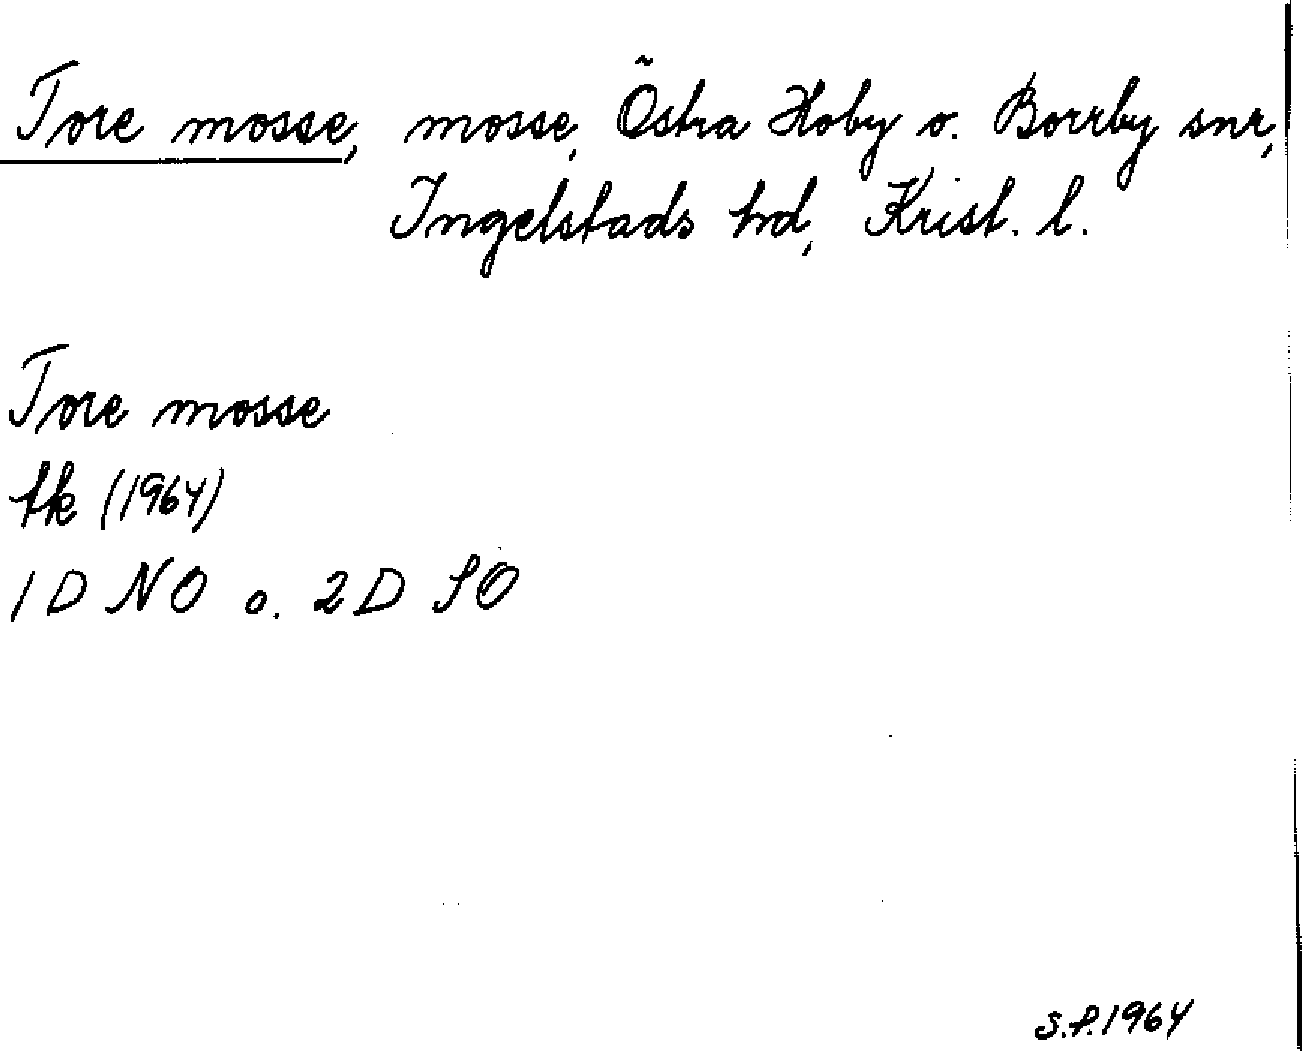 Tore mosse, mosse, Östra Hoby o. Borrby snr,
Ingelstads hd, Krist. l.
Tore mosse
fk (1964)
1D NO o. 2D SO
S.P. 1964